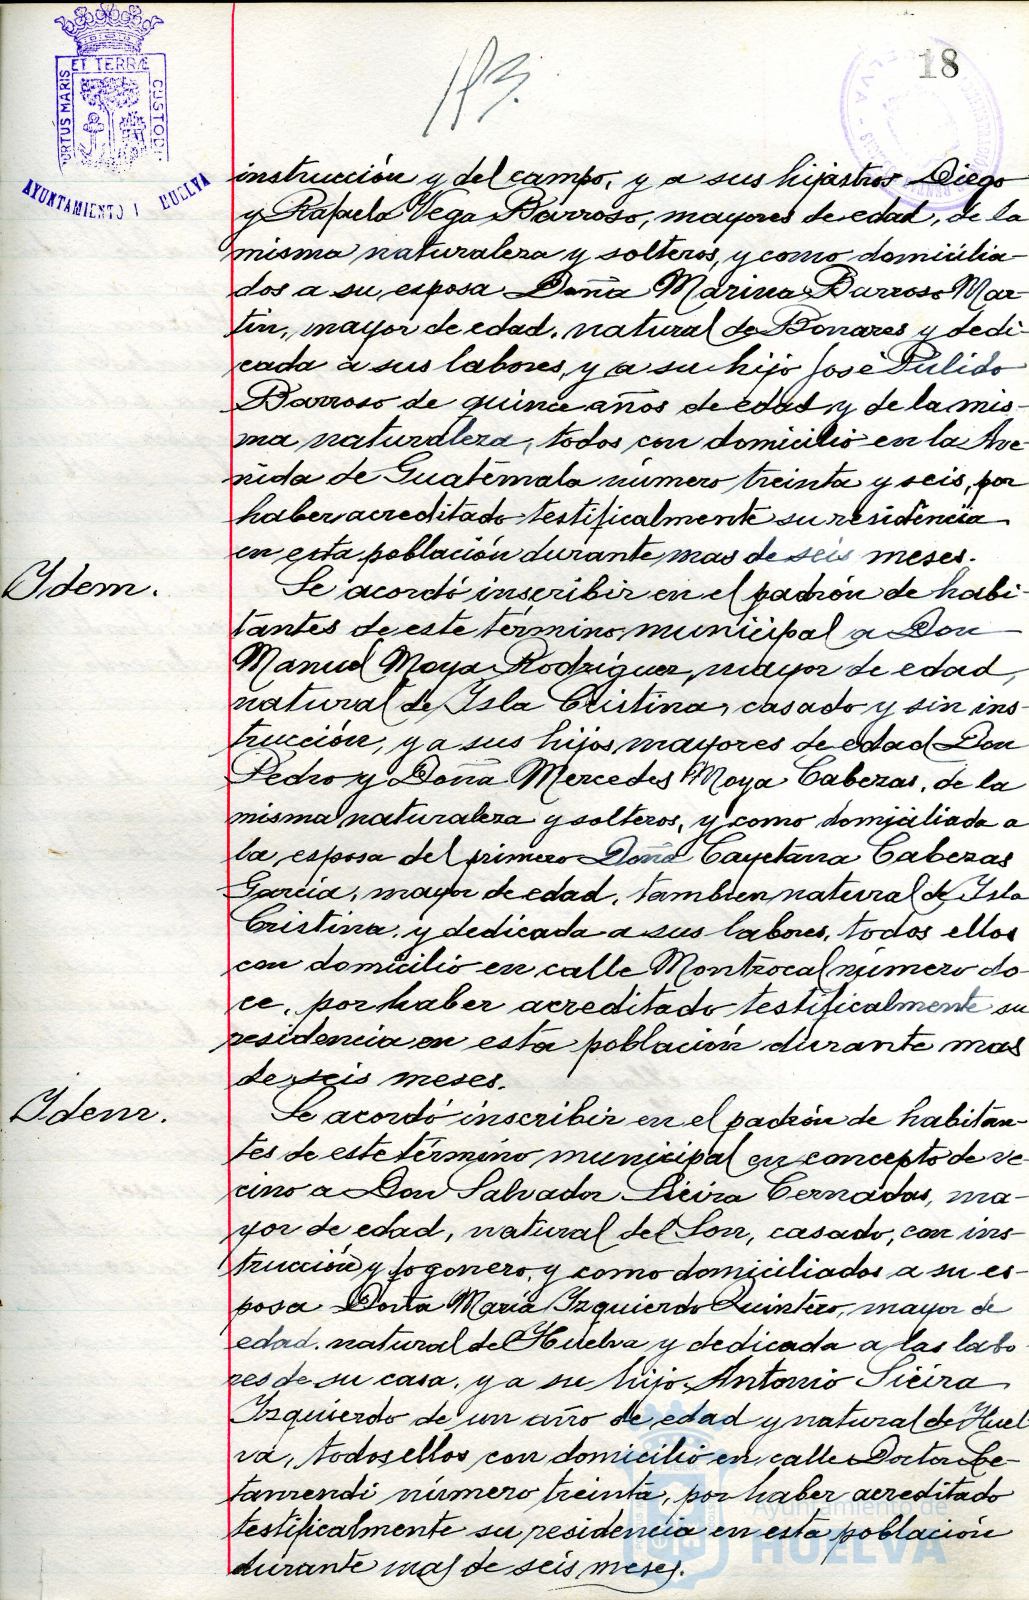 18
PORTUS MARIS
ET TERRÆ
CUSTODI
AYUNTAMIENTO
HUELVA
instrucción y del campo, y a sus hijastros Diego
y Rafaela Vega Barroso, mayores de edad, de la
misma naturaleza y solteros, y como domicilia-
dos a su esposa Doña Marina Barroso Mar-
tín, mayor de edad, natural de Bonares y dedi-
cada a sus labores, y a su hijo José Pulido
Barroso de quince años de edad y de la mis-
ma naturaleza, todos con domicilio en la Ave-
nida de Guatemala número treinta y seis, por
haber acreditado testificalmente su residencia
en esta población durante mas de seis meses.
Idem.
Se acordó inscribir en el padrón de habi-
tantes de este término municipal a Don
Manuel Moya Rodríguez, mayor de edad,
natural de Isla Cristina, casado y sin ins-
trucción, y a sus hijos mayores de edad Don
Pedro y Doña Mercedes Moya Cabezas, de la
misma naturaleza y solteros, y como domiciliada a
la esposa del primero Doña Cayetana Cabezas
García, mayor de edad, tambien natural de Isla
Cristina, y dedicada a sus labores, todos ellos
con domicilio en calle Montrocal número do-
ce, por haber acreditado testificalmente su
residencia en esta población durante mas
de seis meses.
Idem.
Se acordó inscribir en el padrón de habitan-
tes de este término municipal en concepto de ve-
cino a Don Salvador Sieira Cernadas, ma-
yor de edad, natural del Son, casado, con ins-
trucción y fogonero, y como domiciliados a su es-
posa Doña María Izquierdo Quintero, mayor de
edad, natural de Huelva y dedicada a las labo-
res de su casa, y a su hijo Antonio Sieira
Izquierdo de un año de edad y natural de Huel-
va, todos ellos con domicilio en calle Doctor Le-
tamendi número treinta, por haber acreditado
testificalmente su residencia en esta población
durante mas de seis meses.
Ayuntamiento de
HUELVA